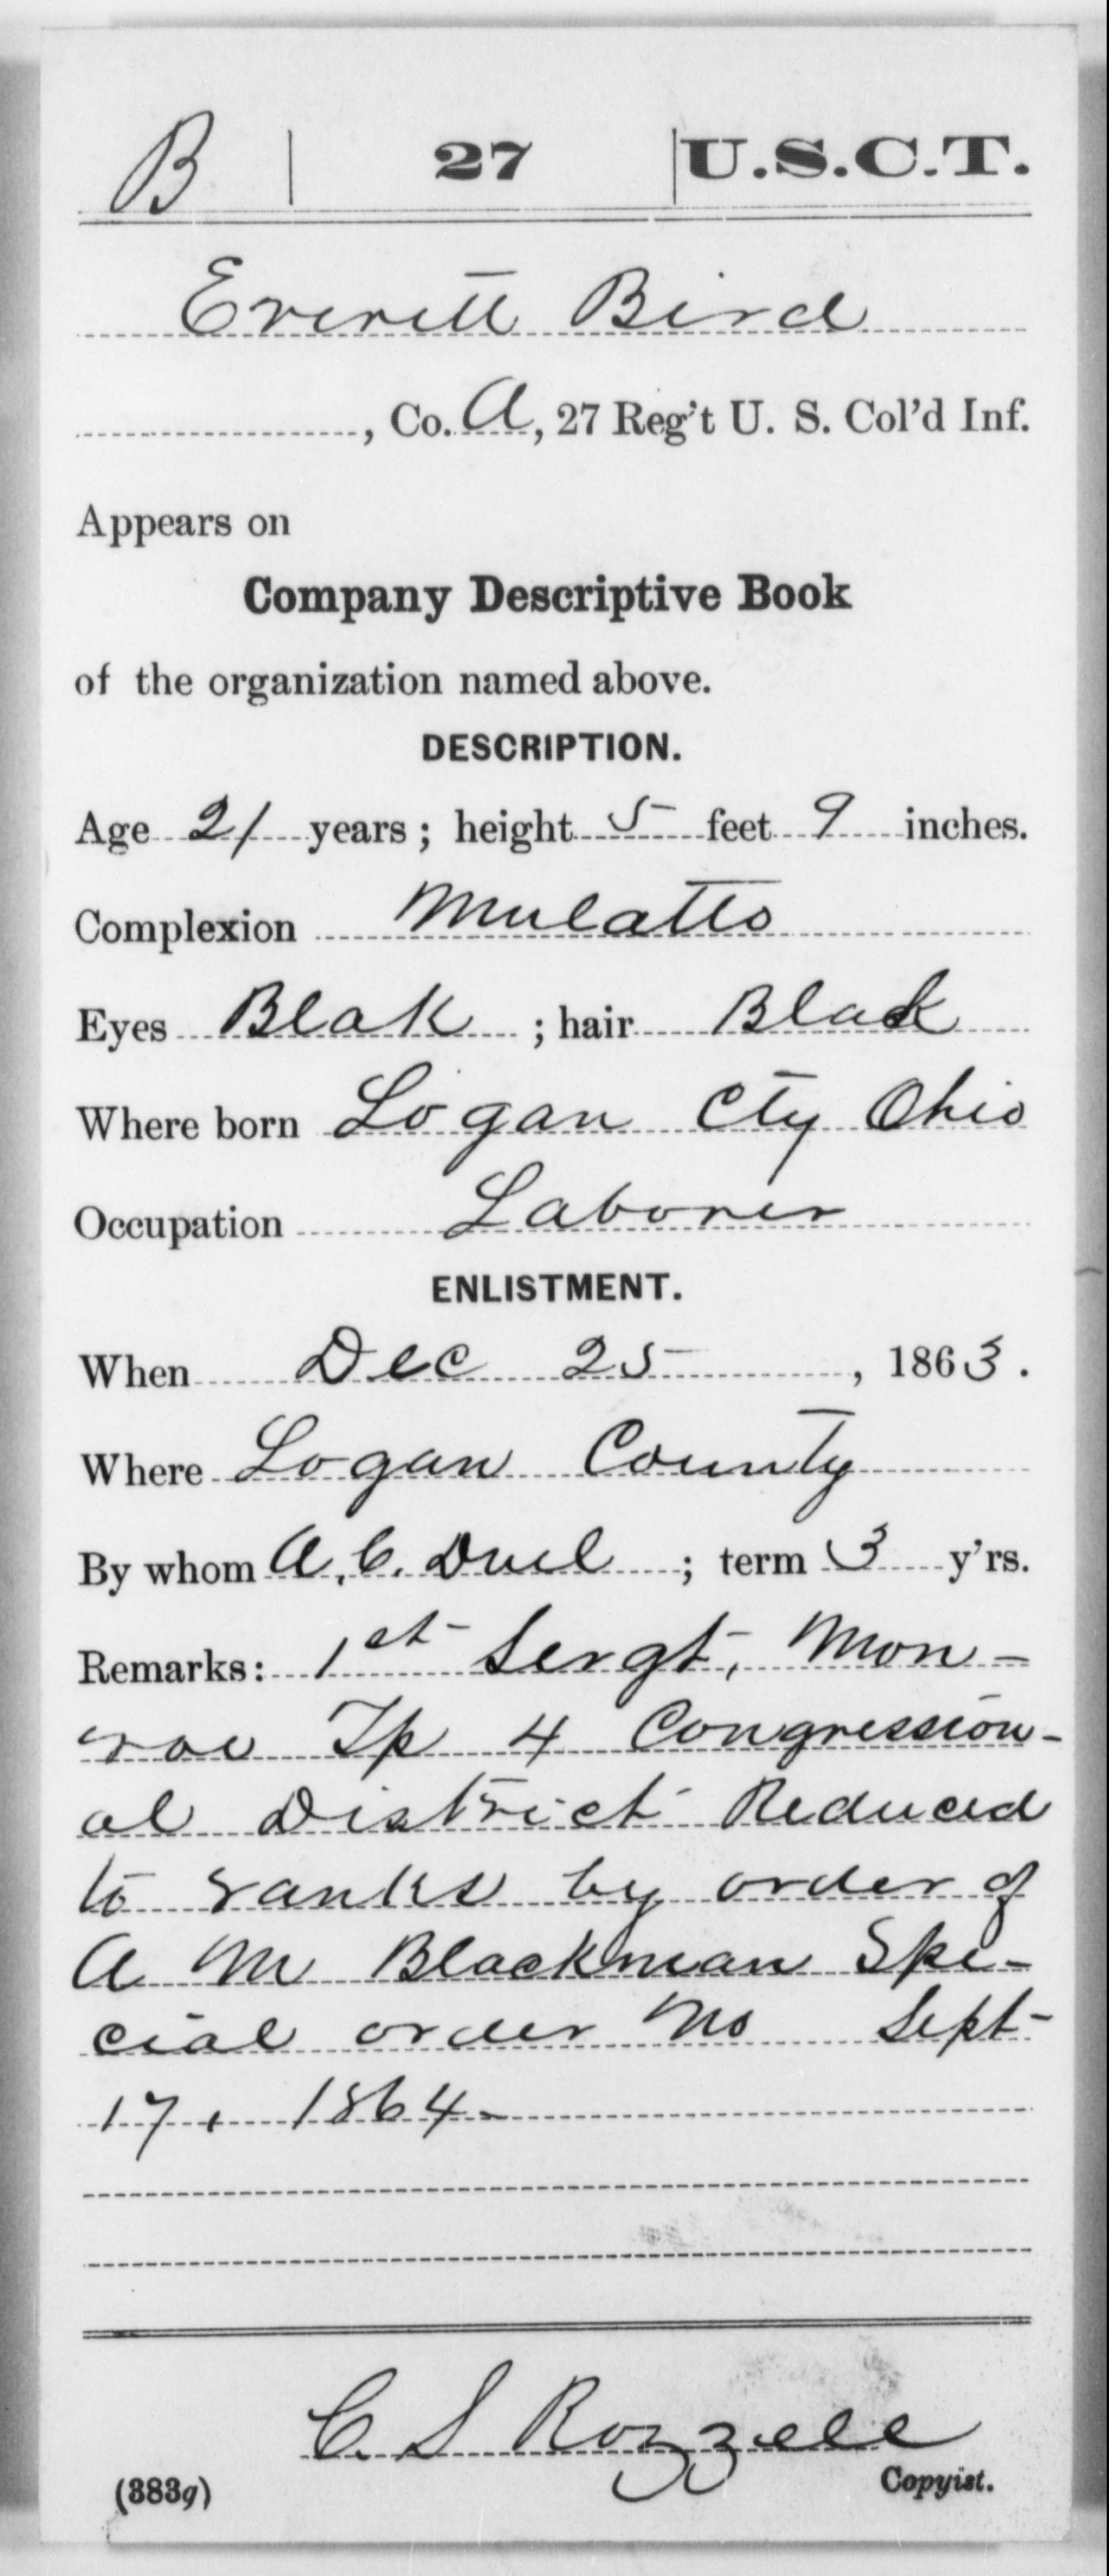 B | 27 | U.S.C.T.
Everett Bird
, Co. A, 27 Reg't U. S. Col'd Inf.
Appears on
Company Descriptive Book
of the organization named above.
DESCRIPTION.
Age 21 years; height 5 feet 9 inches.
Complexion Mulatto
Eyes Blak ; hair Black
Where born Logan Cty Ohio
Occupation Laborer
ENLISTMENT.
When Dec 25, 1863.
Where Logan County
By whom A. C. Duel ; term 3 y'rs.
Remarks: 1st Sergt, Mon-
roe Tp 4 Congression-
al District Reduced
to ranks by order of
A M Blackman Spe-
cial order No Sept
17, 1864-
C. S Rozzell
Copyist.
(383g)